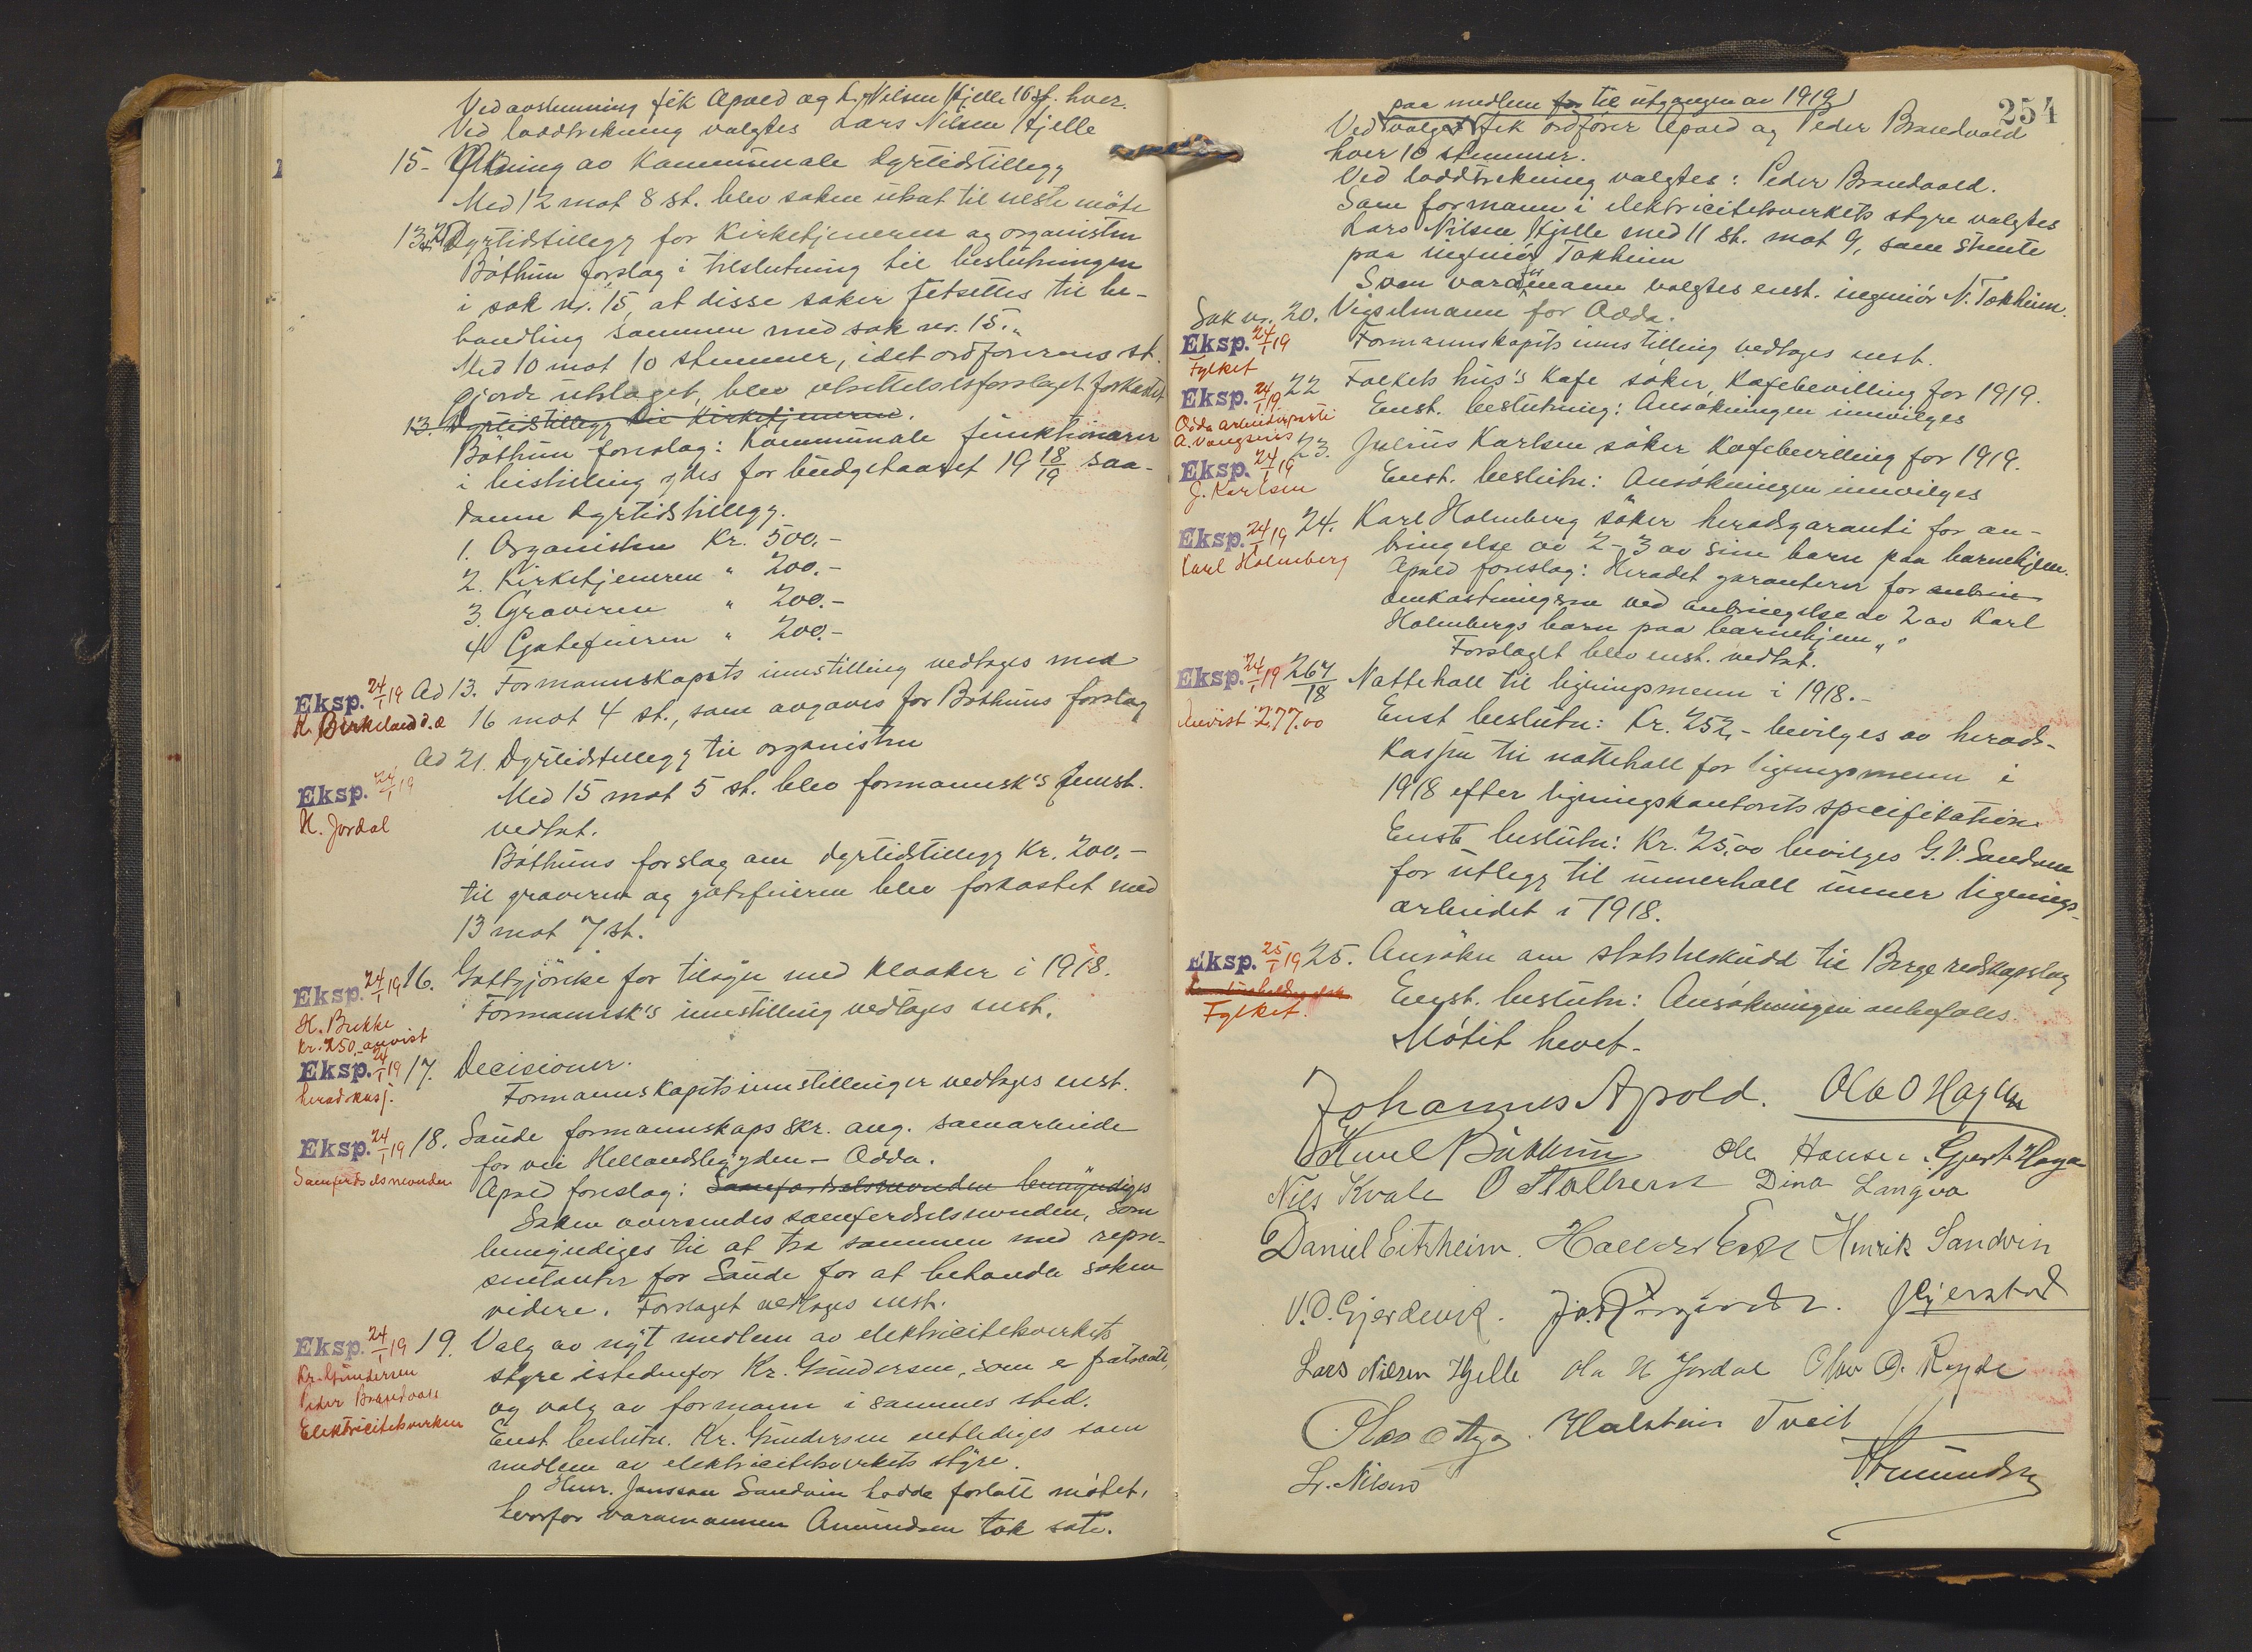 Ved avstemning fik Apold og L. Nilsen Hjelle 10 st. hver.
Ved loddtrekning valgtes Lars Nilsen Hjelle
15- Økning av kommunale dyrtidstillegg
Med 12 mot 8 st. blev saken utsat til neste möte
13 21 Dyrtidstillegg for Kirketjeneren og organisten
Böthun forslag i tilslutning til beslutningen
i sak nr. 15, at disse saker utsettes til be-
handling sammen med sak nr. 15.
Med 10 mot 10 stemmer, idet ordförerens st.
gjorde utslaget, blev utsettelsesforslaget forkastet
13. Dyrtidstillegg til Kirketjeneren.
Böthun foreslag: Kommunale funktionærer
i bistilling ydes for budgetaaret 19 18/19 saa-
danne dyrtidstillegg.
1. Organisten Kr. 500.-
2. Kirketjeneren " 200.-
3. Graveren " 200.-
4 Gatefeieren " 200.-
Eksp. 24/1 19 Ad 13. Formannskapets innstilling vedtages med
K. Birkeland d.e. 16 mot 4 st., som avgaves for Böthuns forslag
Ad 21. Dyrtidstillegg til organisten
Eksp. 24/1 19 Med 15 mot 5 st. blev formannsk's innst.
H. Jordal vedtat.
Böthuns forslag om dyrtidstillegg Kr. 200.-
til graveren og gatefeieren blev forkastet med
13 mot 7 st.
Eksp. 24/1 19 16. Godtgjörelse for tilsyn med kloaker i 1918.
H. Bukke Formannsk's innstilling vedtages enst.
kr. 250,- anvist
Eksp. 24/1 19 17. Decisioner.
heradskasj. Formannskapets innstillinger vedtages enst.
Eksp. 24/1 19 18. Saude formannskaps skr. ang. samarbeide
for vei Hellandsbygden - Odda.
Samferdselsnevnden Apold foreslag: Samferdselsnevnden bemyndiges
Saken oversendes samferdselsnevnden, som
bemyndiges til at tra sammen med repre-
sentanter for Saude for at behandle saken
videre. Forslaget vedtages enst.
Eksp. 24/1 19 19. Valg av nyt medlem av elektricitetsverkets
Kr. Gundersen styre istedenfor Kr. Gundersen, som er fratraadt,
Peder Brandvold og valg av formann i sammes sted.
Elektricitetsverket Enst beslutn. Kr. Gundersen entlediges som
medlem av elektricitetsverkets styre.
Henr. Jansson Sandvin hadde forlatt mötet,
hvorfor varamannen Amundsen tok sete.
254
paa medlem for til utgangen av 1919
Ved valget fik ordförer Apold og Peder Brandvold
hver 10 stemmer.
Ved loddtrekning valgtes: Peder Brandvold.
Som formann i elektricitetsverkets styre valgtes
Lars Nilsen Hjelle med 11 st. mot 9, som stemte
paa ingeniör Tokheim
Som varaformann valgtes enst. ingeniör N. Tokheim.
Sak nr. 20. Vigselmann for Odda.
Eksp. 24/1 19 Formannskapets innstilling vedtages enst.
Fylket
Eksp. 24/1 19 22 Folkets hus's Kafe söker Kafebevilling for 1919.
Odda arbeiderparti Enst. beslutning: Ansökningen innvilges
A. Vangsnes
Eksp. 24/1 19 23. Julius Karlsen söker Kafebevilling for 1919.
J. Karlsen Enst. beslutn: Ansökningen innvilges
Eksp. 24/1 19 24. Karl Holmberg söker heradsgaranti for an-
Karl Holmberg bringelse av 2-3 av sine barn paa barnehjem.
Apold foreslag: Heradet garanterer for anbrin
omkostningerne ved anbringelse av 2 av Karl
Holmbergs barn paa barnehjem".
Forslaget blev enst. vedtat.
Eksp. 24/1 19 264/18 Nattehold til ligningsmenn i 1918.-
Anvist 277.00 Enst beslutn: Kr. 252,- bevilges av herads-
kassen til nattehold for ligningsmenn i
1918 efter ligningskontorets specifikation.
Enst beslutn: Kr. 25,00 bevilges G. V. Sandven
for utlegg til unnerhold unner lignings-
arbeidet i 1918.
Eksp. 25/1 19 25. Ansökn om statstilskudd til Berge redskapslag
Fylket. Enst. beslutn: Ansökningen anbefales.
Mötet hevet.
Johannes Apold. Olav O Hagen
Emil Böthun Ole Hansen. Gjert Haga
Nils Kvale O Stallherm Dina Langva
Daniel Eitrheim. Henrik Sandvin
V. D. Gjerdevik. J Gjerstad
Lars Nilsen Hjelle Ola H Jordal Olav O. Ragde
Halstein Tveit
L. Nilsen Amundsen